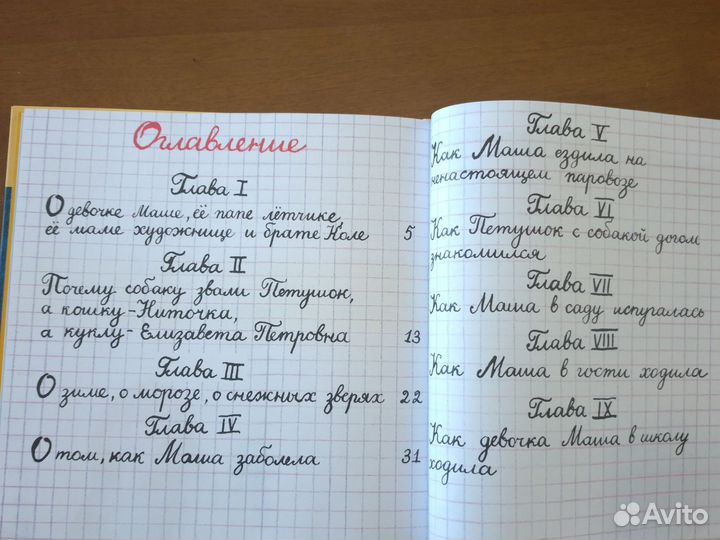 Оглавление
Глава I
О девочке Маше, её папе лётчике,
её маме художнице и брате Коле 5
Глава II
Почему собаку звали Петушок,
а кошку-Ниточка,
а куклу-Елизавета Петровна 13
Глава III
О зиме, о морозе, о снежных зверях 22
Глава IV
О том, как Маша заболела 31
Глава V
Как Маша ездила на
ненастоящем паровозе
Глава VI
Как Петушок с собакой догом
знакомился
Глава VII
Как Маша в саду испугалась
Глава VIII
Как Маша в гости ходила
Глава IX
Как девочка Маша в школу
ходила
Avito